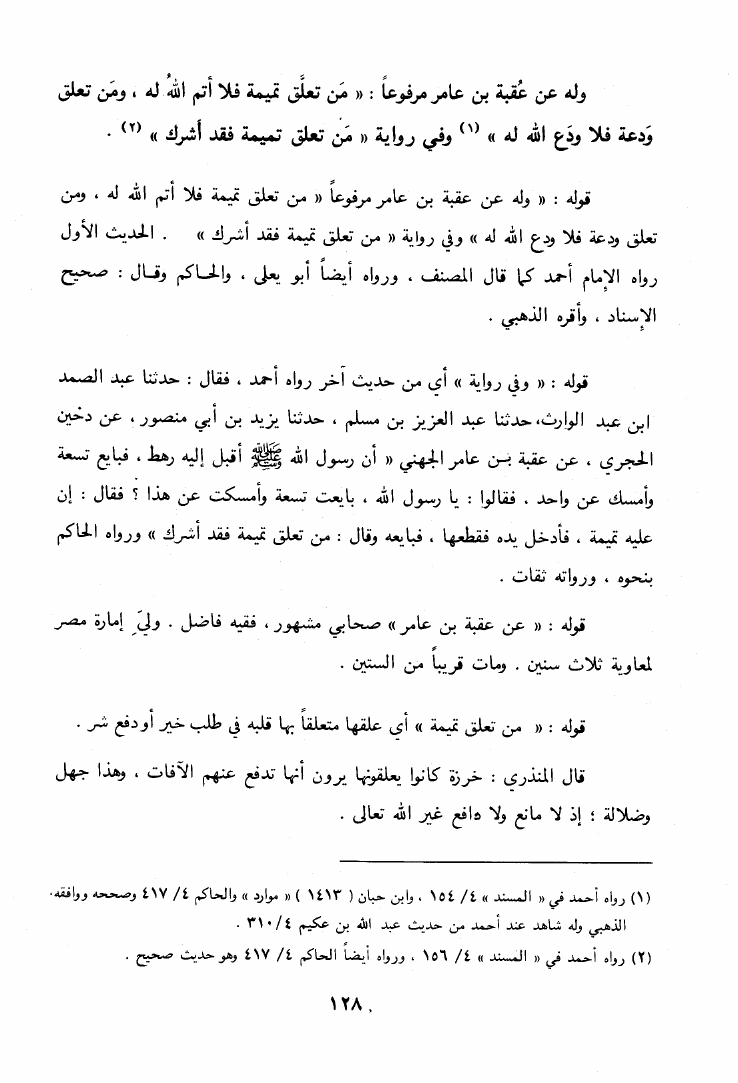 وله عن عُقبة بن عامر مرفوعاً : « مَن تعلَّق تميمة فلا أتم اللهُ له ، ومَن تعلق
وَدعة فلا ودَع الله له » (١) وفي رواية « مَن تعلق تميمة فقد أَشرك » (٢) .
قوله : « وله عن عقبة بن عامر مرفوعاً « من تعلق تميمة فلا أتم الله له ، ومن
تعلق ودعة فلا ودع الله له » وفي رواية « من تعلق تميمة فقد أشرك » . الحديث الأول
رواه الإمام أحمد كما قال المصنف ، ورواه أيضاً أبو يعلى ، والحاكم وقال : صحيح
الإسناد ، وأقره الذهبي .
قوله : « وفي رواية » أي من حديث آخر رواه أحمد ، فقال : حدثنا عبد الصمد
ابن عبد الوارث، حدثنا عبد العزيز بن مسلم ، حدثنا يزيد بن أبي منصور ، عن دخين
الحجري ، عن عقبة بن عامر الجهني « أن رسول الله ﷺ أقبل إليه رهط ، فبايع تسعة
وأمسك عن واحد . فقالوا : يا رسول الله ، بايعت تسعة وأمسكت عن هذا ؟ فقال : إن
عليه تميمة ، فأدخل يده فقطعها ، فبايعه وقال : من تعلق تميمة فقد أشرك » ورواه الحاكم
بنحوه ، ورواته ثقات .
قوله : « عن عقبة بن عامر » صحابي مشهور ، فقيه فاضل . وليَ إمارة مصر
لمعاوية ثلاث سنين . ومات قريباً من الستين .
قوله : « من تعلق تميمة » أي علقها متعلقاً بها قلبه في طلب خير أو دفع شر .
قال المنذري : خرزة كانوا يعلقونها يرون أنها تدفع عنهم الآفات ، وهذا جهل
وضلالة ؛ إذ لا مانع ولا دافع غير الله تعالى .
(١) رواه أحمد في « المسند » ٤/ ١٥٤ ، وابن حبان ( ١٤١٣ ) « موارد » والحاكم ٤/ ٤١٧ وصححه ووافقه.
الذهبي وله شاهد عند أحمد من حديث عبد الله بن عكيم ٤/ ٣١٠ .
(٢) رواه أحمد في « المسند » ٤/ ١٥٦ ، ورواه أيضاً الحاكم ٤/ ٤١٧ وهو حديث صحيح .
١٢٨